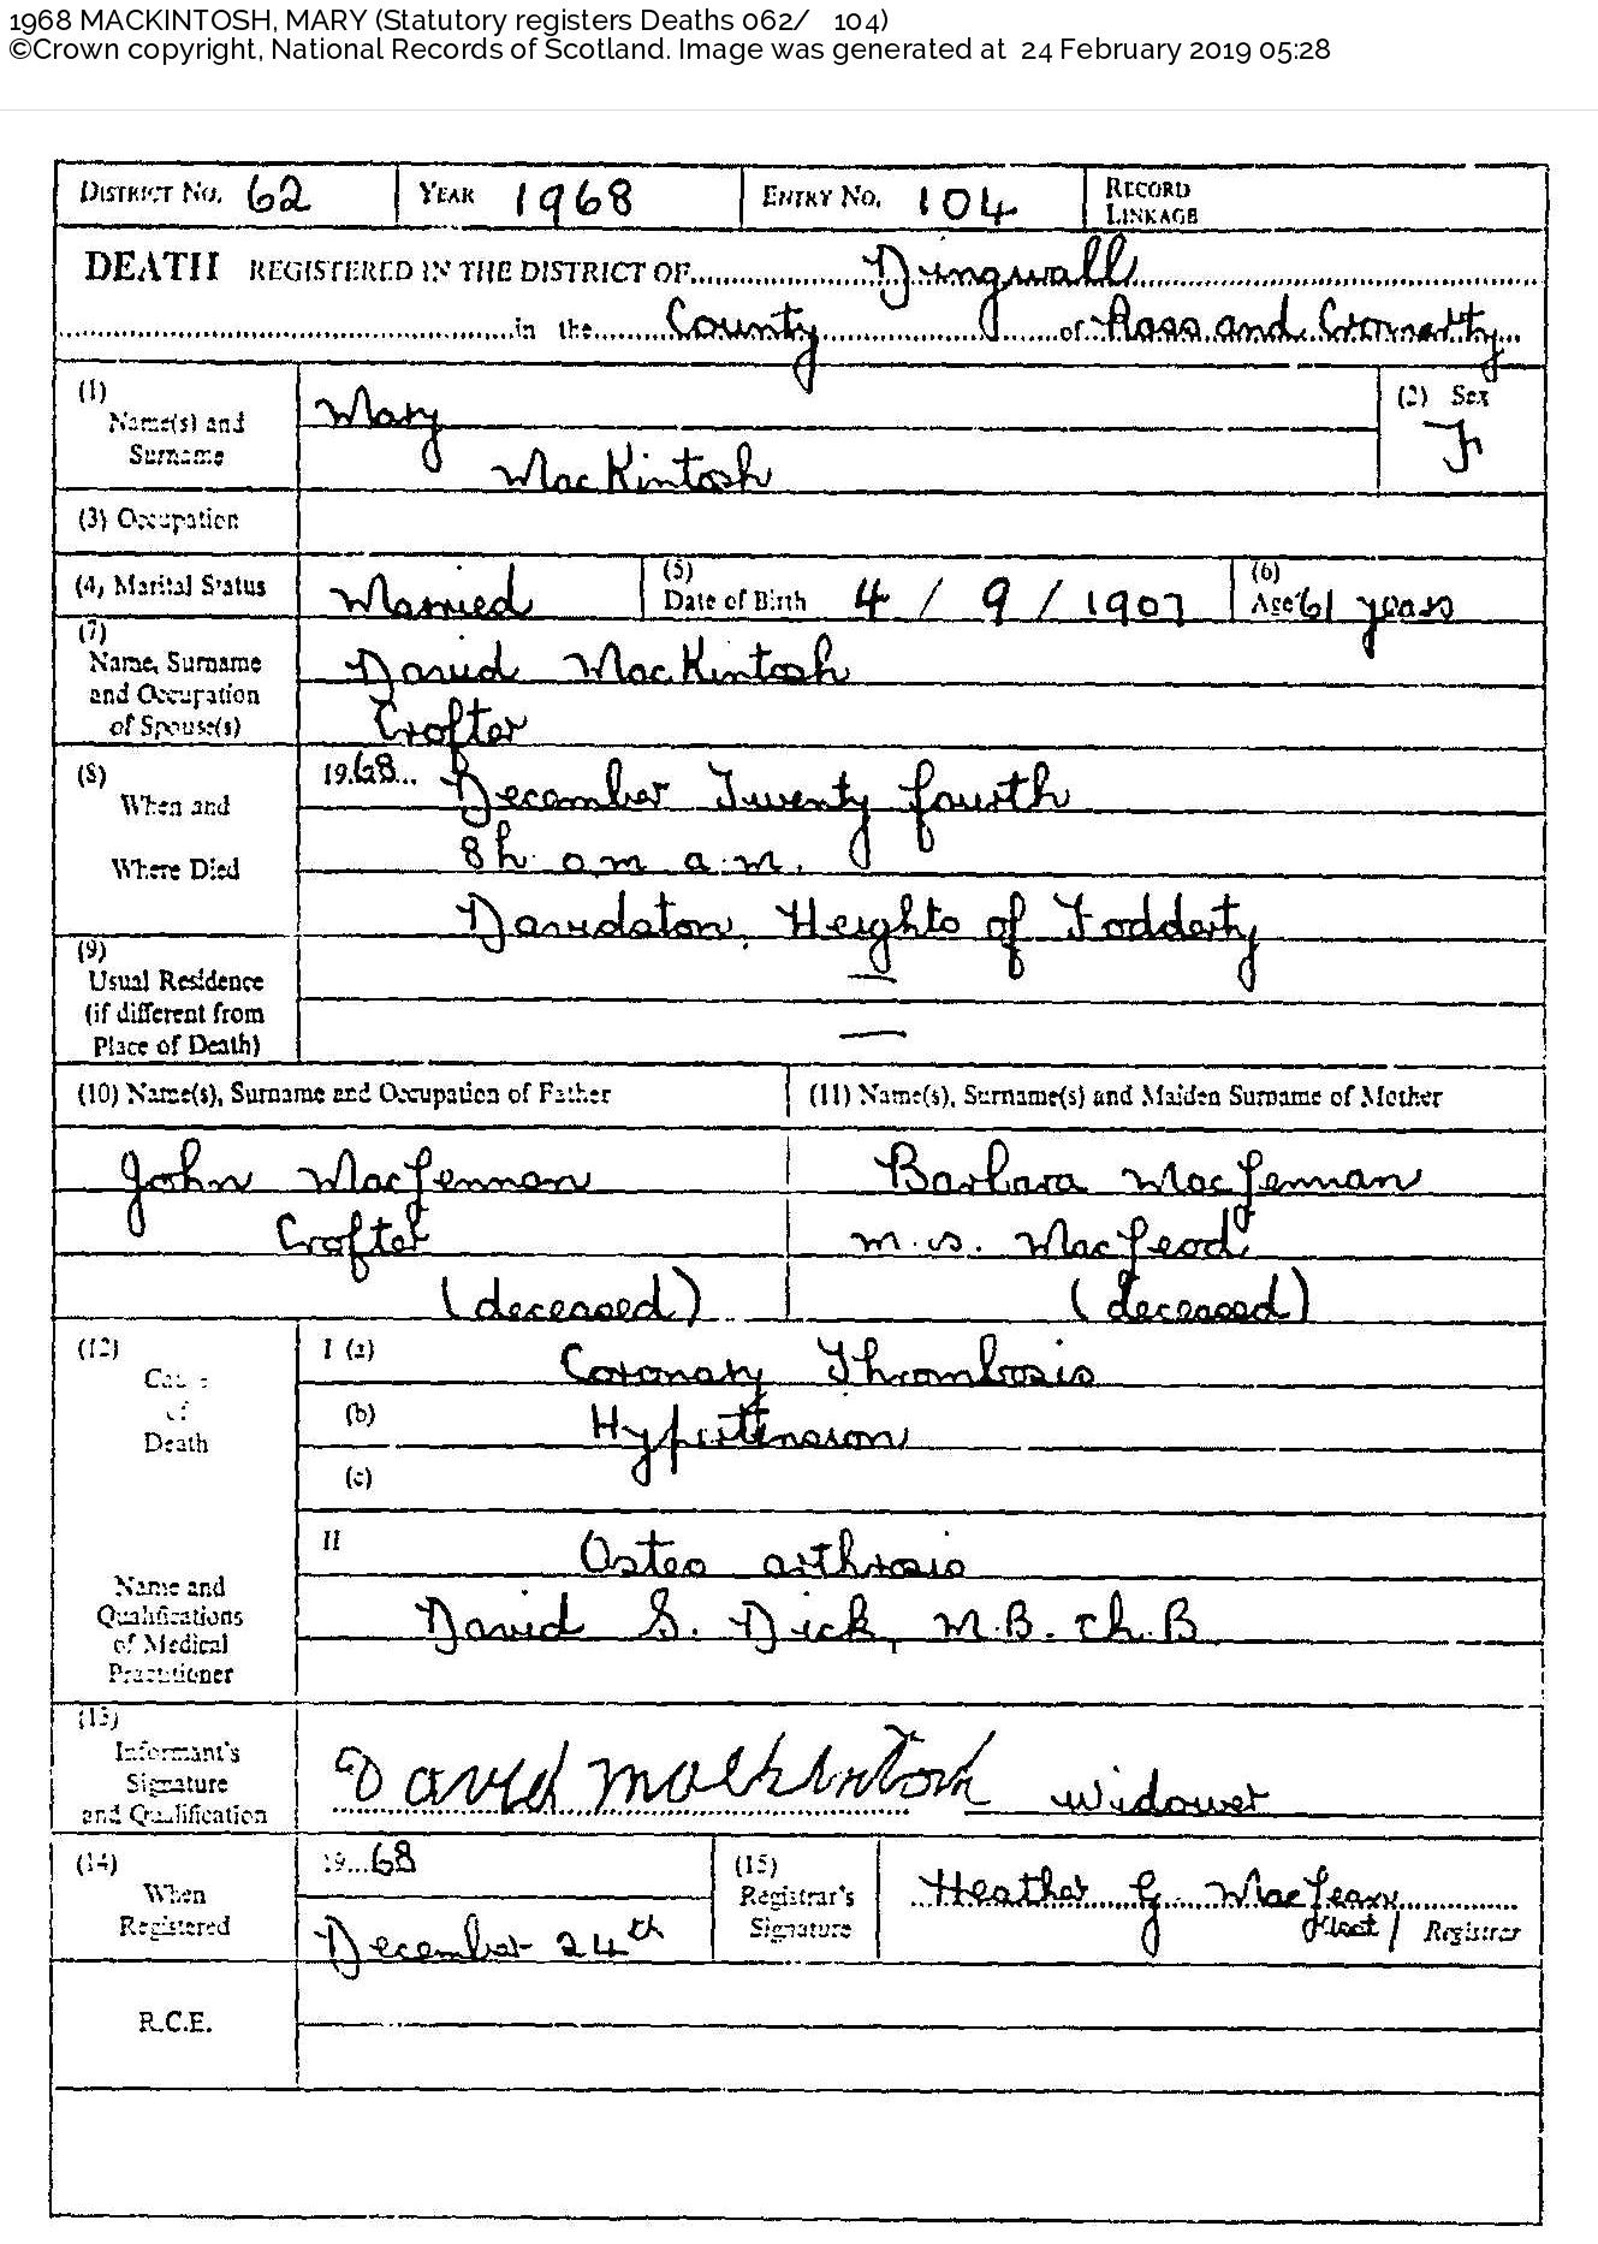 1968 MACKINTOSH, MARY (Statutory registers Deaths 062/ 104)
©Crown copyright, National Records of Scotland. Image was generated at 24 February 2019 05:28
DISTRICT NO. 62 YEAR 1968 ENTRY NO. 104 RECORD LINKAGE
DEATH REGISTERED IN THE DISTRICT OF Dingwall
in the County of Ross and Cromarty
(1) Name(s) and Surname
Mary
MacKintosh
(2) Sex
F
(3) Occupation
(4) Marital Status Married (5) Date of Birth 4 / 9 / 1907 (6) Age 61 years
(7) Name, Surname and Occupation of Spouse(s)
David MacKintosh
Crofter
(8) When and Where Died
1968 December Twenty fourth
8h. 0m a.m.
Davidston, Heights of Fodderty
(9) Usual Residence (if different from Place of Death)
—
—
(10) Name(s), Surname and Occupation of Father (11) Name(s), Surname(s) and Maiden Surname of Mother
John MacLennan Barbara MacLennan
Crofter m.s. MacLeod
(deceased) (deceased)
(12) Cause of Death
I (a) Coronary Thrombosis
(b) Hypertension
(c)
II Osteo arthrosis
Name and Qualifications of Medical Practitioner
David S. Dick, M.B. Ch.B
(13) Informant's Signature and Qualification
David Mackintosh widower
(14) When Registered
1968
December 24th
(15) Registrar's Signature
Heather G. MacLean
Registrar
R.C.E.